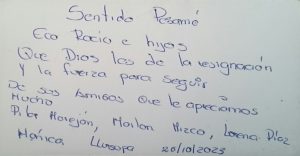 Sentido Pesamé
Eco Rocio e hijos
Que Dios les de la resignación
y la fuerza para seguir
De sus amigos que le apreciamos
Mucho
Pilar Morejón, Marlon Mizco, Lorena Díaz
Mónica Llusupa 20/10/2023